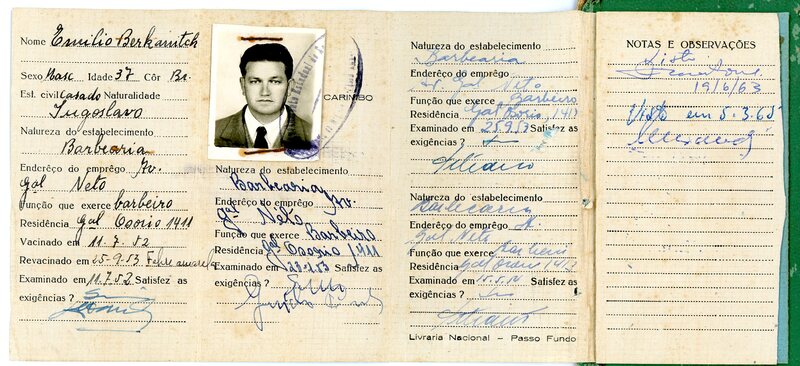 Nome Emilio Berkanitch
Sexo Masc Idade 37 Côr Br.
Est. civil casado Naturalidade
Iugoslavo
Natureza do estabelecimento
Barbearia
Enderêço do emprêgo Av.
Gal Neto
Função que exerce barbeiro
Residência Gal Osorio 1411
Vacinado em 11.7.52
Revacinado em 25-9-53 Febre amarela
Examinado em 11.7.52 Satisfez as
exigências?
CARIMBO
Natureza do estabelecimento
Barbearia Av.
Enderêço do emprêgo
gal Neto
Função que exerce Barbeiro
Residência gal Osorio 1411
Examinado em Satisfez as
exigências?
Natureza do estabelecimento
Barbearia
Enderêço do emprêgo
Gal Neto
Função que exerce Barbeiro
Residência Gal Osorio, 1411
Examinado em 25.9.53 Satisfez as
exigências?
Natureza do estabelecimento
Barbearia
Enderêço do emprêgo Av.
Gal Neto
Função que exerce Barbeiro
Residência Gal Osorio 1411
Examinado em Satisfez as
exigências?
Livraria Nacional – Passo Fundo
NOTAS E OBSERVAÇÕES
Visto
19/6/63
Visto em 5.3.65